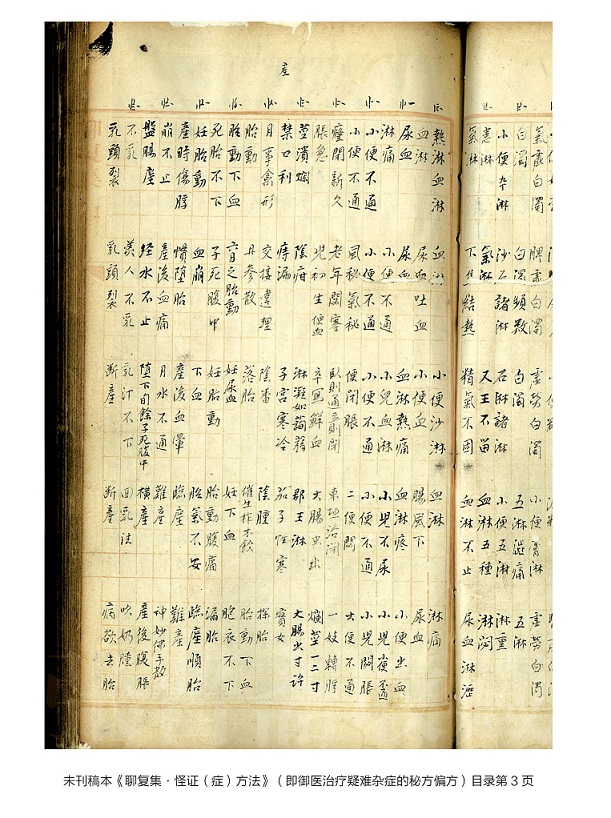 氣虛白濁 脾虛白濁 虛勞白濁 小便膏淋 虛勞白濁
白濁 白濁頻數 白濁 五淋澁痛 五淋
小便卒淋 沙石諸淋 石淋諸淋 小便五淋 淋重
惠淋 氣淋 又王不畱 血淋五種 淋悶
氣淋 下焦結熱 精氣不固 血淋不止 尿血淋瀝
産
熱淋血淋 血淋 小便沙淋 血淋 淋痛
血淋 尿血 小便血 腸風下 尿血
尿血 尿血吐血 血淋熱痛 血淋疼 小便出血
淋痛 小便不通 小兒血淋 小兒不尿 小兒夜遺
小便不通 小便不通 小便不通 小便不通 小兒閉脹
小便不通 風秘氣秘 便閉脹 二便閉 大便不通
癃閉新久 老年閉塞 臥則通立則閉 東垣治閉 一妓轉脬
脹急 兒初生便血 卒冩鮮血 大腸虫出 爛莖一二寸
莖潰爛 陰疳 淋瀝如蒟蒻 郡王淋 大腸出寸許
禁口利 痔漏 子宮寒冷 茄子性寒 寡女
月事禽形 交接違理 陰毒 陰腫 探胎
胎動 丹參散 落胎 催生柞木飲 胎動下血
胎動下血 六月之胎動 妊尿血 妊下血 胞衣不下
死胎不下 子死腹中 妊胎動 胎動腹痛 漏胎
妊胎動 血崩 下血 胎氣不安 臨產順胎
產時傷脬 慣墮胎 產後血暈 臨產 難產
崩不止 產後血痛 月水不通 難產 神妙佛手散
盤腸產 經水不止 墮下旬餘子死腹中 橫產 產後腹脹
不乳 美人不乳 乳汁不下 回乳法 吹奶
乳頭裂 乳頭裂 斷產 斷產 病欲去胎
未刊稿本《聊复集·怪证（症）方法》（即御医治疗疑难杂症的秘方偏方）目录第 3 页